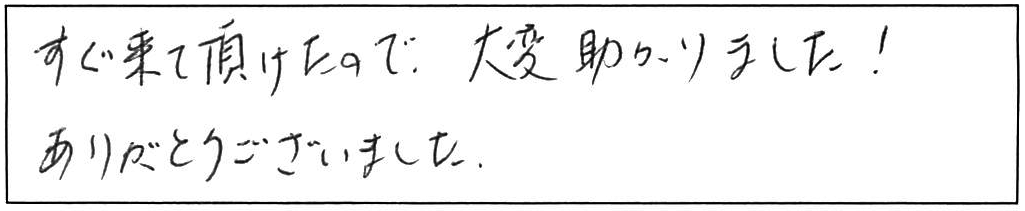 すぐ来て頂けたので、大変助かりました！
ありがとうございました。